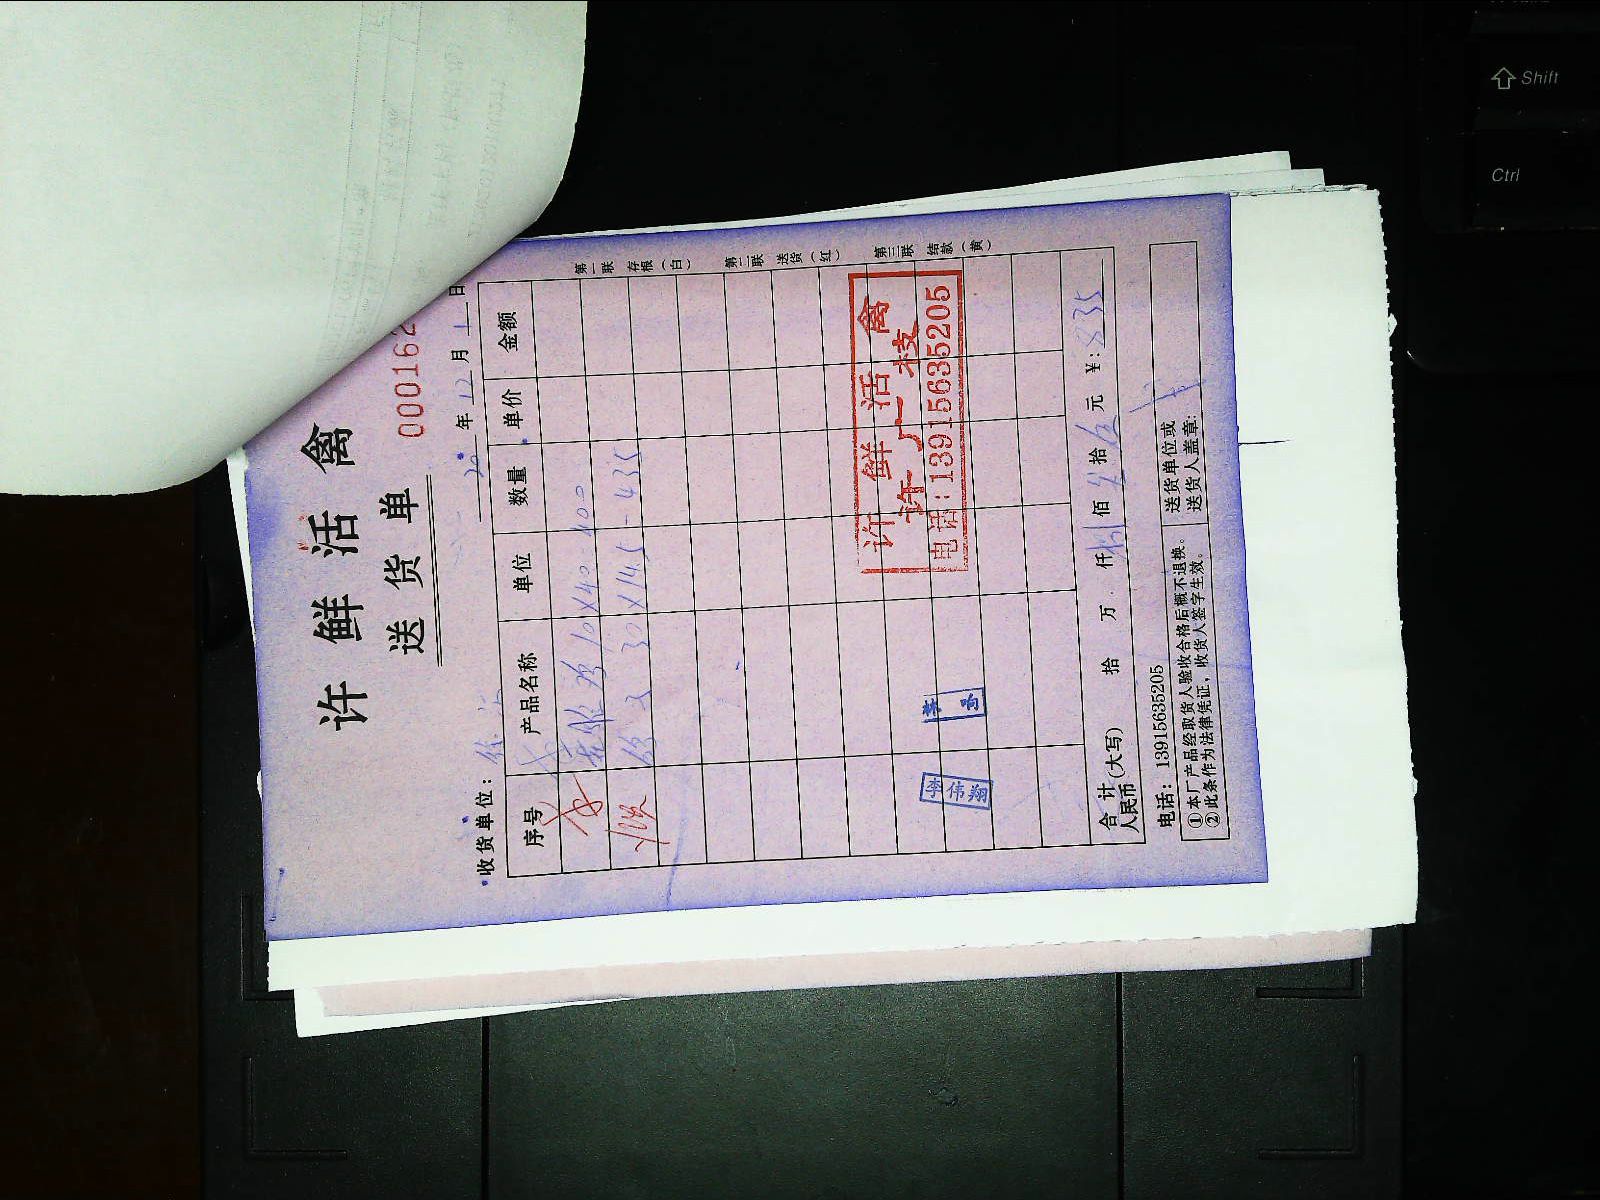 许鲜活禽
送货单
000162
20 年 12 月 1 日
收货单位：
序号 产品名称 单位 数量 单价 金额
10×40=400
30×14.5=435
第一联 存根（白） 第二联 送货（红） 第三联 结款（黄）
许鲜活禽
许广枝
电话：13915635205
李伟翔
响
合计 人民币（大写） 拾 万 仟 捌 佰 拾 伍 元 ¥：835
电话：13915635205
①本厂产品经取货人验收合格后概不退换。
②此条作为法律凭证，收货人签字生效。
送货单位或
送货人盖章：
Shift
Ctrl